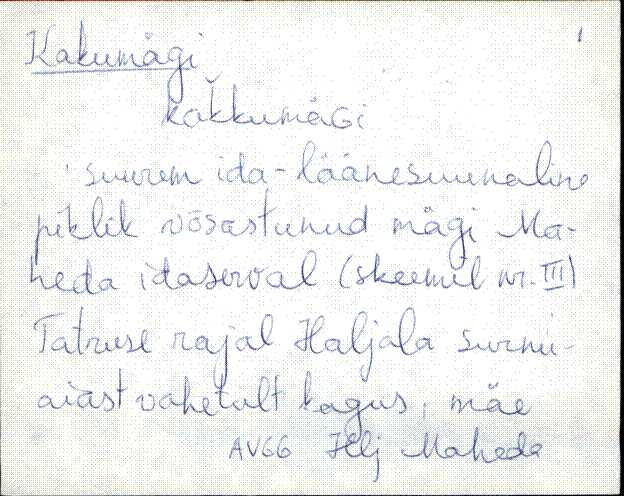 Kakumägi 1
kak̆kumäGi
suurem ida-läänesuunaline
piklik võsastunud mägi Ma-
heda idaserval (skeemil nr. III)
Tatruse rajal Haljala surnu-
aiast vahetult kagus, mäe
AV66 Hlj Maheda